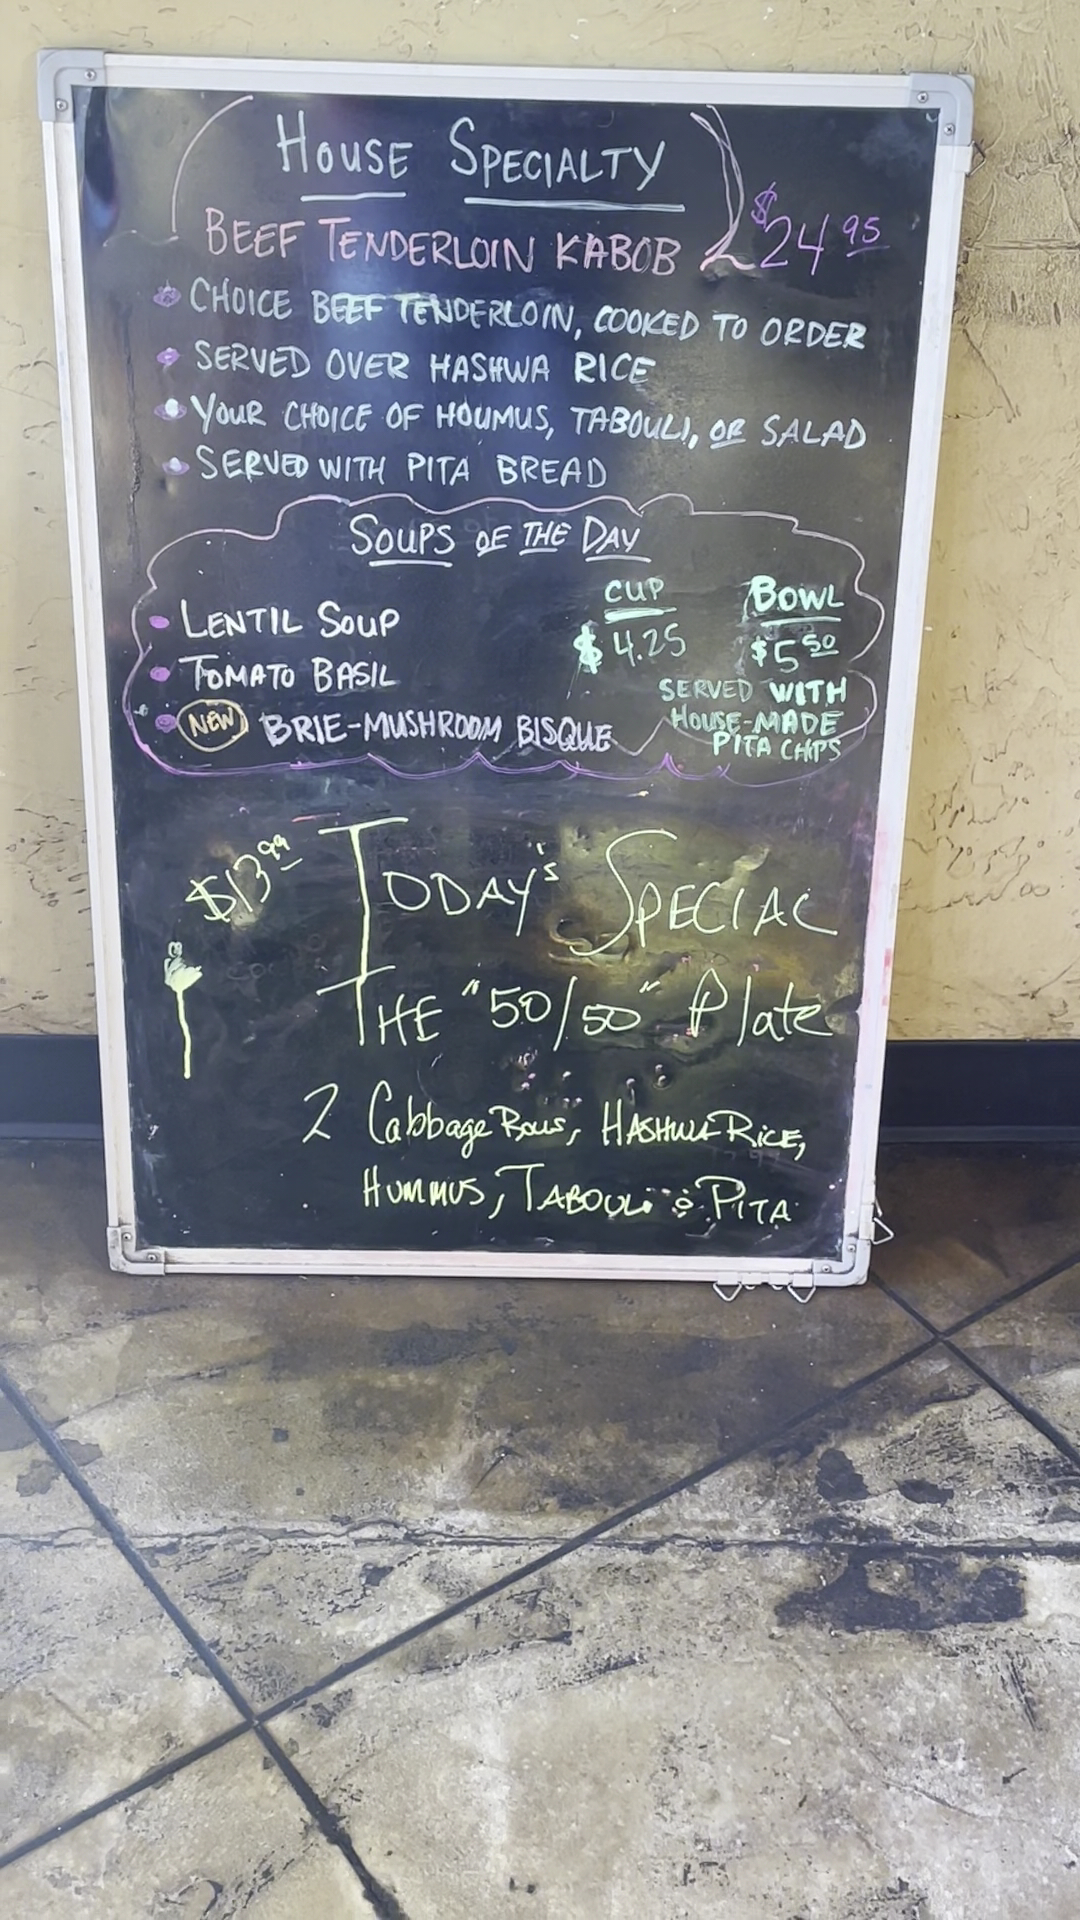 HOUSE SPECIALTY
BEEF TENDERLOIN KABOB $24.95
CHOICE BEEF TENDERLOIN, COOKED TO ORDER
SERVED OVER HASHWA RICE
YOUR CHOICE OF HOUMUS, TABOULI, OR SALAD
SERVED WITH PITA BREAD
SOUPS OF THE DAY
CUP BOWL
LENTIL SOUP $4.25 $5.50
TOMATO BASIL
SERVED WITH
NEW BRIE-MUSHROOM BISQUE
HOUSE-MADE
PITA CHIPS
$13.99 TODAY'S SPECIAL
THE "50/50" Plate
2 Cabbage Rolls, HASHWA RICE,
HUMMUS, TABOULI & PITA